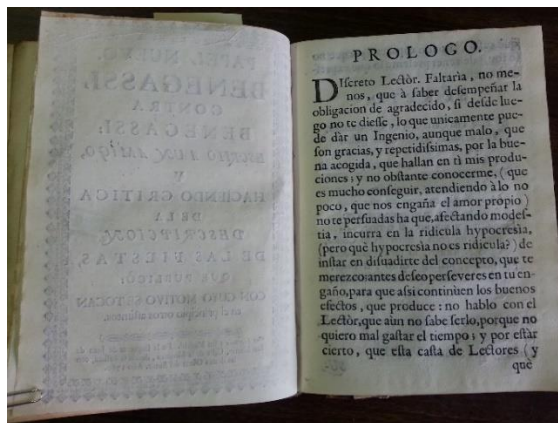 PAPEL NUEVO,
BENEGASSI,
CONTRA
BENEGASSI;
ESCRITO A UN AMIGO,
Y
HACIENDO CRITICA
DE LA
DESCRIPCION
DE LAS FIESTAS,
QUE PUBLICÒ;
CON CUYO MOTIVO SE TOCAN
en el principio otros
PROLOGO.
DIſcreto Lectòr. Faltarìa, no me-
nos, que à ſaber deſempeñar la
obligacion de agradecido, ſi deſde lue-
go no te dieſſe, lo que unicamente pue-
de dàr un Ingenio, aunque malo, que
ſon gracias, y repetidiſsimas, por la bue-
na acogida, que hallan en tì mis produ-
ciones; y no obſtante conocerme, (que
es mucho conſeguir, atendiendo à lo no
poco, que nos engaña el amor proprio)
no te perſuadas ha que, afectando modeſ-
tia, incurra en la ridicula hypocresìa,
(pero què hypocresìa no es ridicula?) de
inſtar en diſuadirte del concepto, que te
merezco: antes deſeo perſeveres en tu en-
gaño, para que aſsi continùen los buenos
efectos, que produce: no hablo con el
Lectòr, que aùn no ſabe ſerlo, porque no
quiero mal gaſtar el tiempo; y por eſtàr
cierto, que eſta caſta de Lectores (y
que